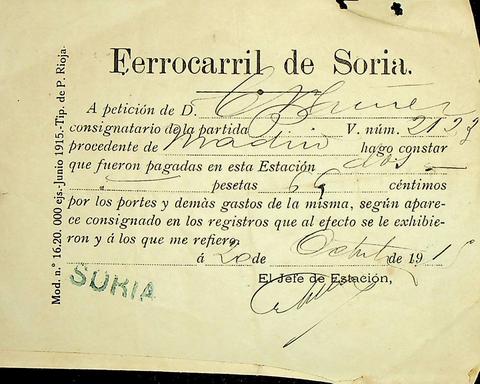 Ferrocarril de Soria.
A petición de D.
consignatario de la partida V. núm. 2123
procedente de Madrid hago constar
que fueron pagadas en esta Estación dos
pesetas céntimos
por los portes y demàs gastos de la misma, según apare-
ce consignado en los registros que al efecto se le exhibie-
ron y á los que me refiero.
á 20 de Octubre de 191
El Jefe de Estación,
SORIA
Mod. n.° 16.20.000 ejs.-Junio 1915.-Tip. de P. Rioja.